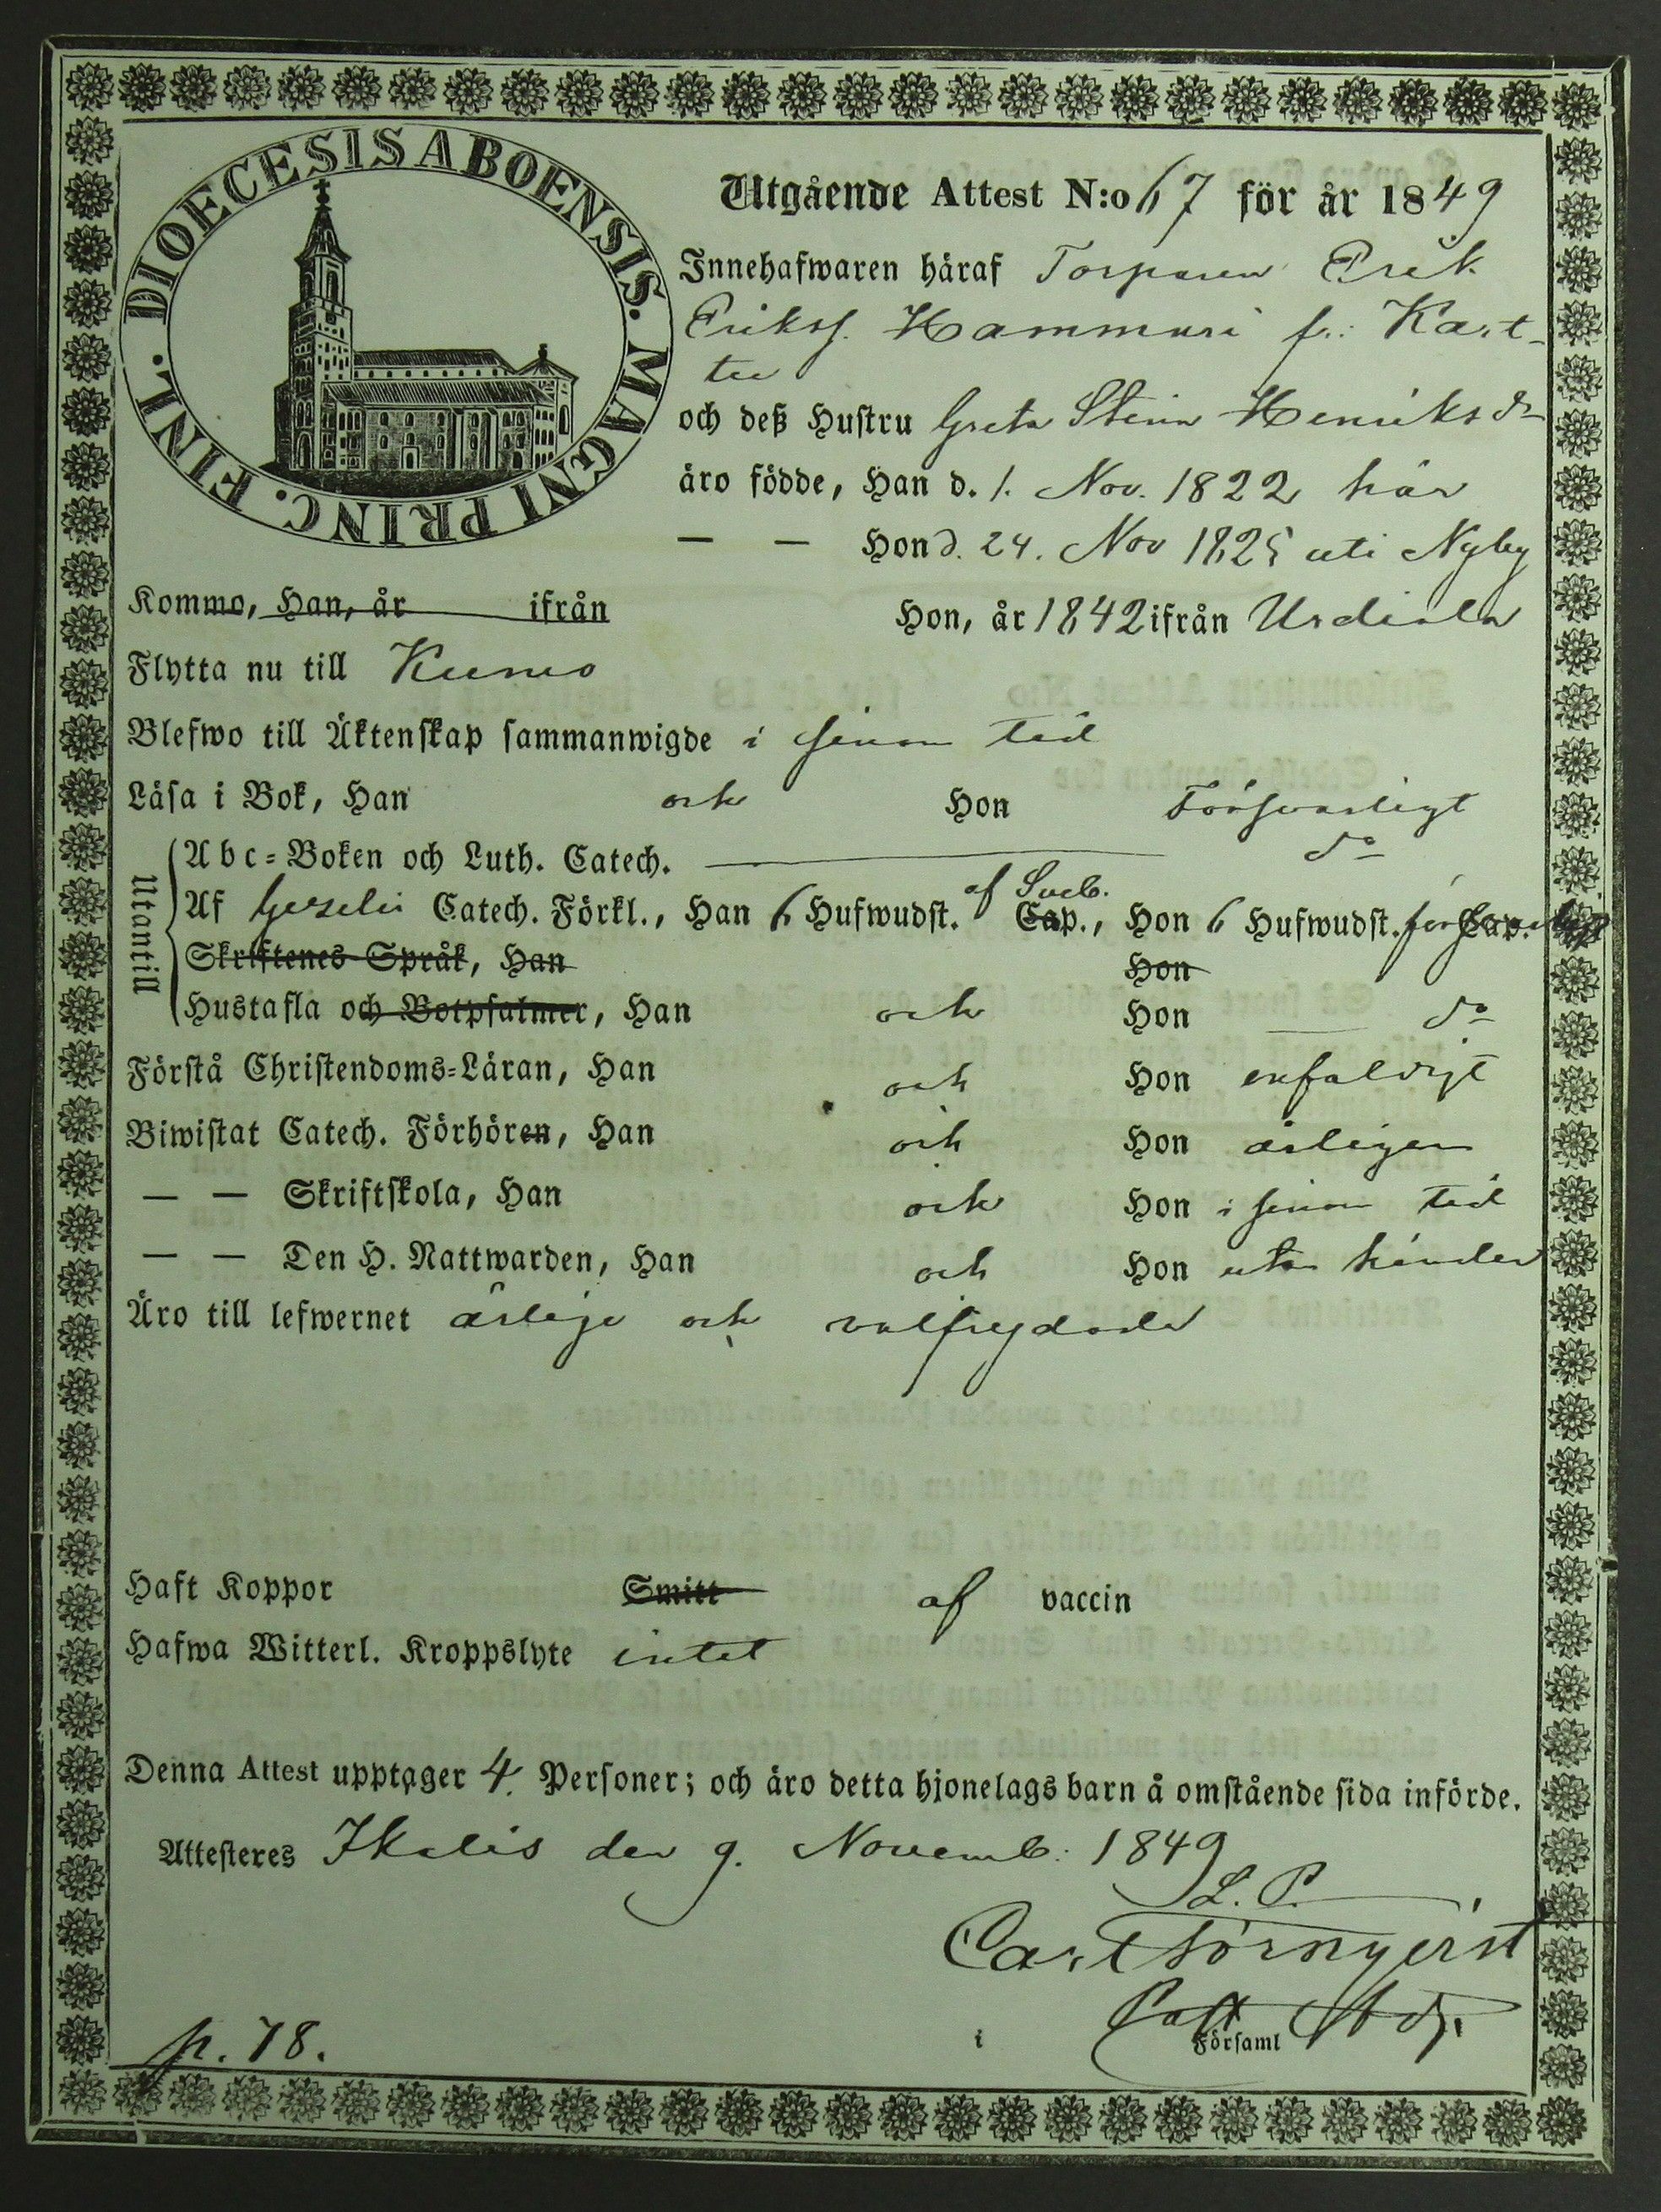 DIOECESIS ABOENSIS. MAGNI PRINC. FINL.
Utgående Attest N:o 67 för år 1849
Innehafwaren häraf Torparen Erik
Erikss. Hammuri fr: Kart-
tu
och deß Hustru Greta Stina Henriksdr
äro födde, Han d. 1. Nov. 1822 här
— — Hon d. 24. Nov 1825 uti Nyby
Kommo, Han, år ifrån Hon, år 1842 ifrån Urdiala
Flytta nu till Kumo
Blefwo till Äktenskap sammanwigde i sinom tid
Läsa i Bok, Han och Hon Försvarligt
Utantill
Abc-Boken och Luth. Catech. — do
Af Gezelii Catech. Förkl., Han 6 Hufwudst. af Sveb. Cap., Hon 6 Hufwudst. Cap.
Skriftenes Språk, Han Hon
Hustafla och Botpsalmer, Han och Hon — do
Förstå Christendoms-Läran, Han och Hon enfaldigt
Biwistat Catech. Förhören, Han och Hon årligen
— — Skriftskola, Han och Hon i sinom tid
— — Den H. Nattwarden, Han och Hon utan hinder
Äro till lefwernet ärlige och välfrejdade
Haft Koppor Smitt af vaccin
Hafwa Witterl. Kroppslyte intet
Denna Attest upptager 4. Personer; och äro detta hjonelags barn å omstående sida införde.
Attesteres Ikalis den 9. Novemb: 1849
L. P.
Carl Törnqvist
Past. Adj.
i Församl
p. 78.